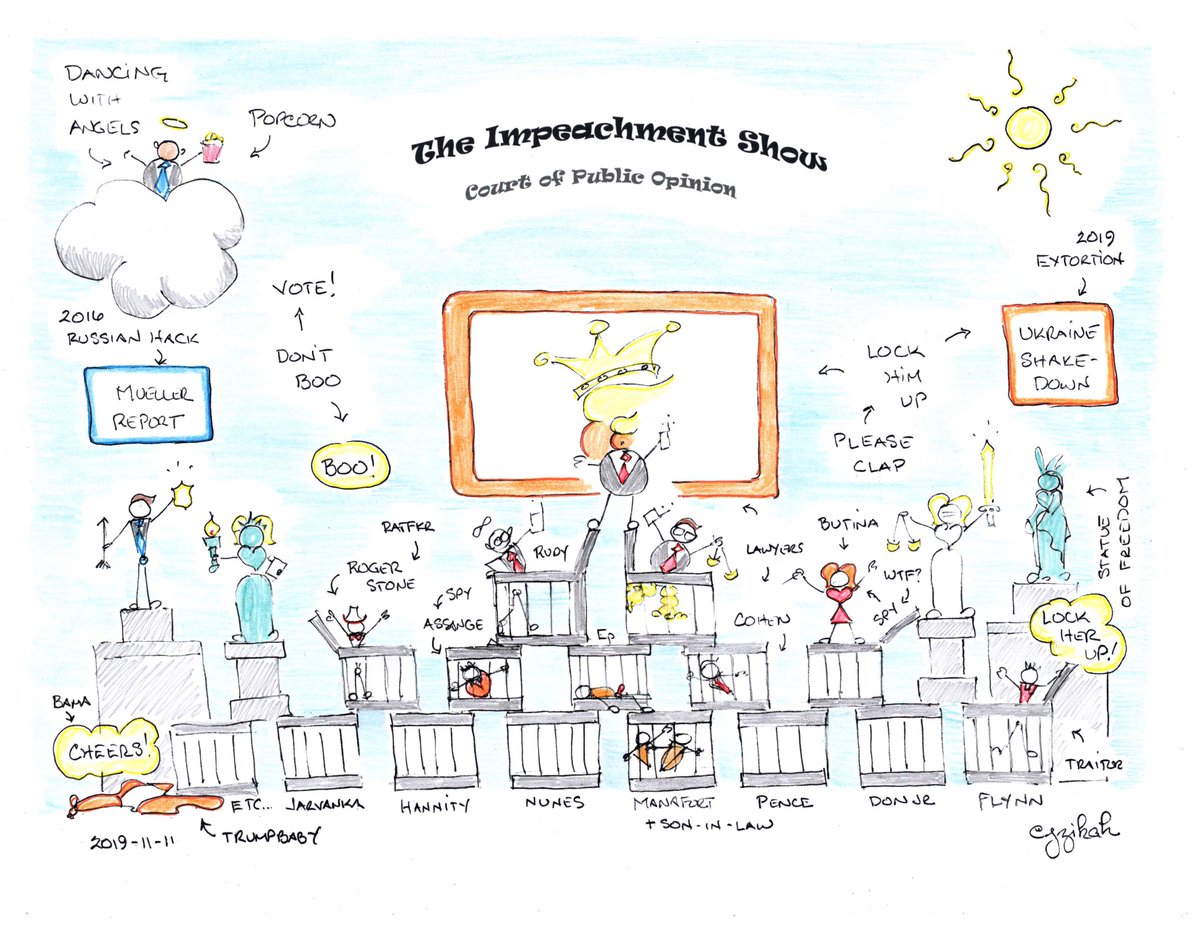 The Impeachment Show
Court of Public Opinion
DANCING
WITH
ANGELS
POPCORN
2016
RUSSIAN HACK
MUELLER
REPORT
VOTE!
DON'T
BOO
BOO!
2019
EXTORTION
UKRAINE
SHAKE-
DOWN
LOCK
HIM
UP
PLEASE
CLAP
STATUE
OF FREEDOM
RATFKR
ROGER
STONE
SPY
ASSANGE
RUDY
LAWYERS
BUTINA
WTF?
SPY
COHEN
EP
LOCK
HER
UP!
BAMA
CHEERS!
TRAITOR
ETC...
JARVANKA
HANNITY
NUNES
MANAFORT
+ SON-IN-LAW
PENCE
DON JR
FLYNN
TRUMPBABY
2019-11-11
cyzikah